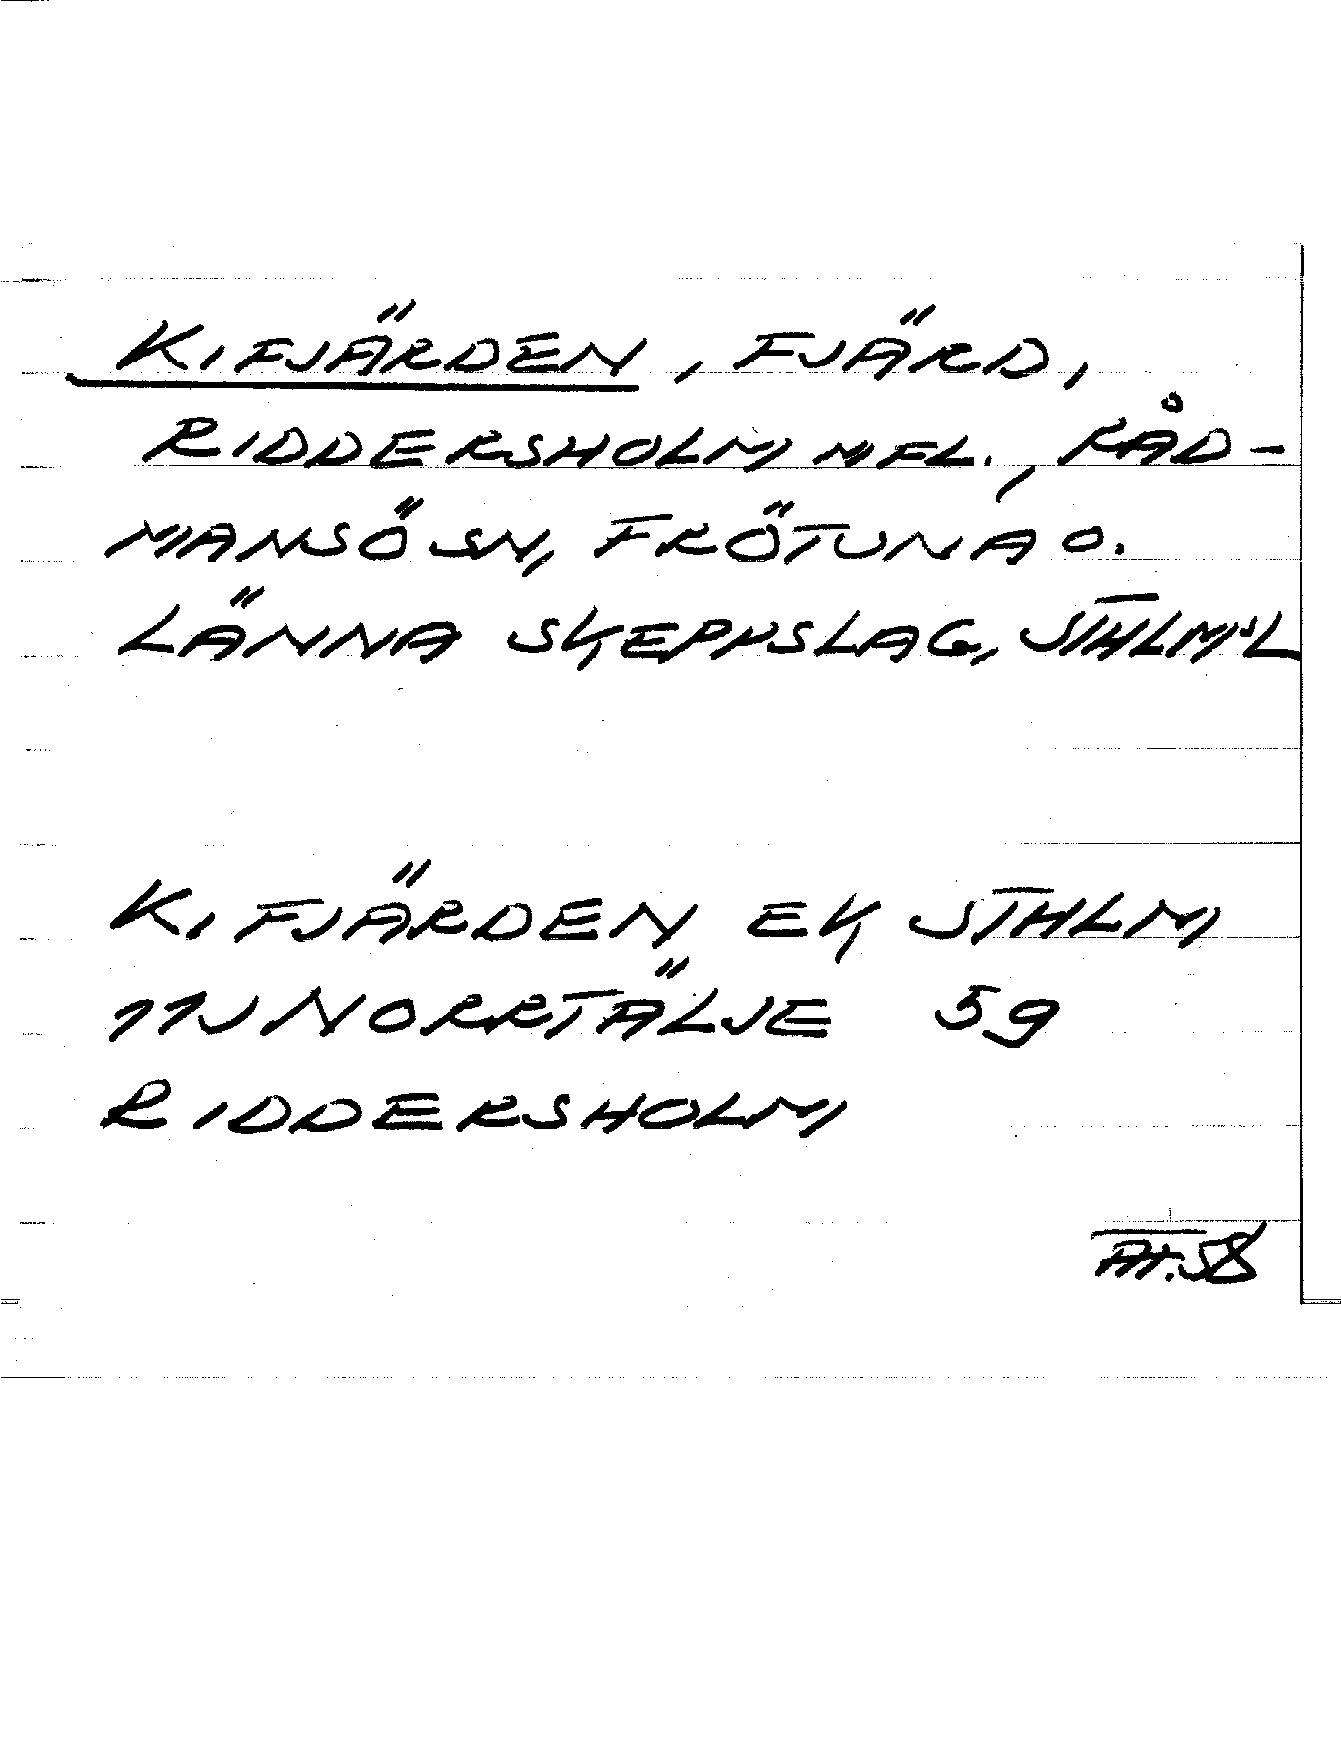 KIFJÄRDEN, FJÄRD,
RIDDERSHOLM MFL., RÅD-
MANSÖ SN, FRÖTUNA O.
LÄNNA SKEPPSLAG, STHLMSL
KIFJÄRDEN EK STHLM
11J NORRTÄLJE 59
RIDDERSHOLM